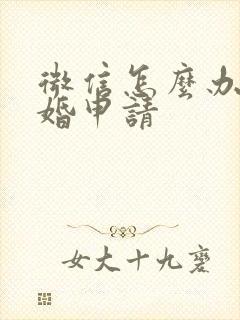 微信怎麼办
婚申請
女大十九變